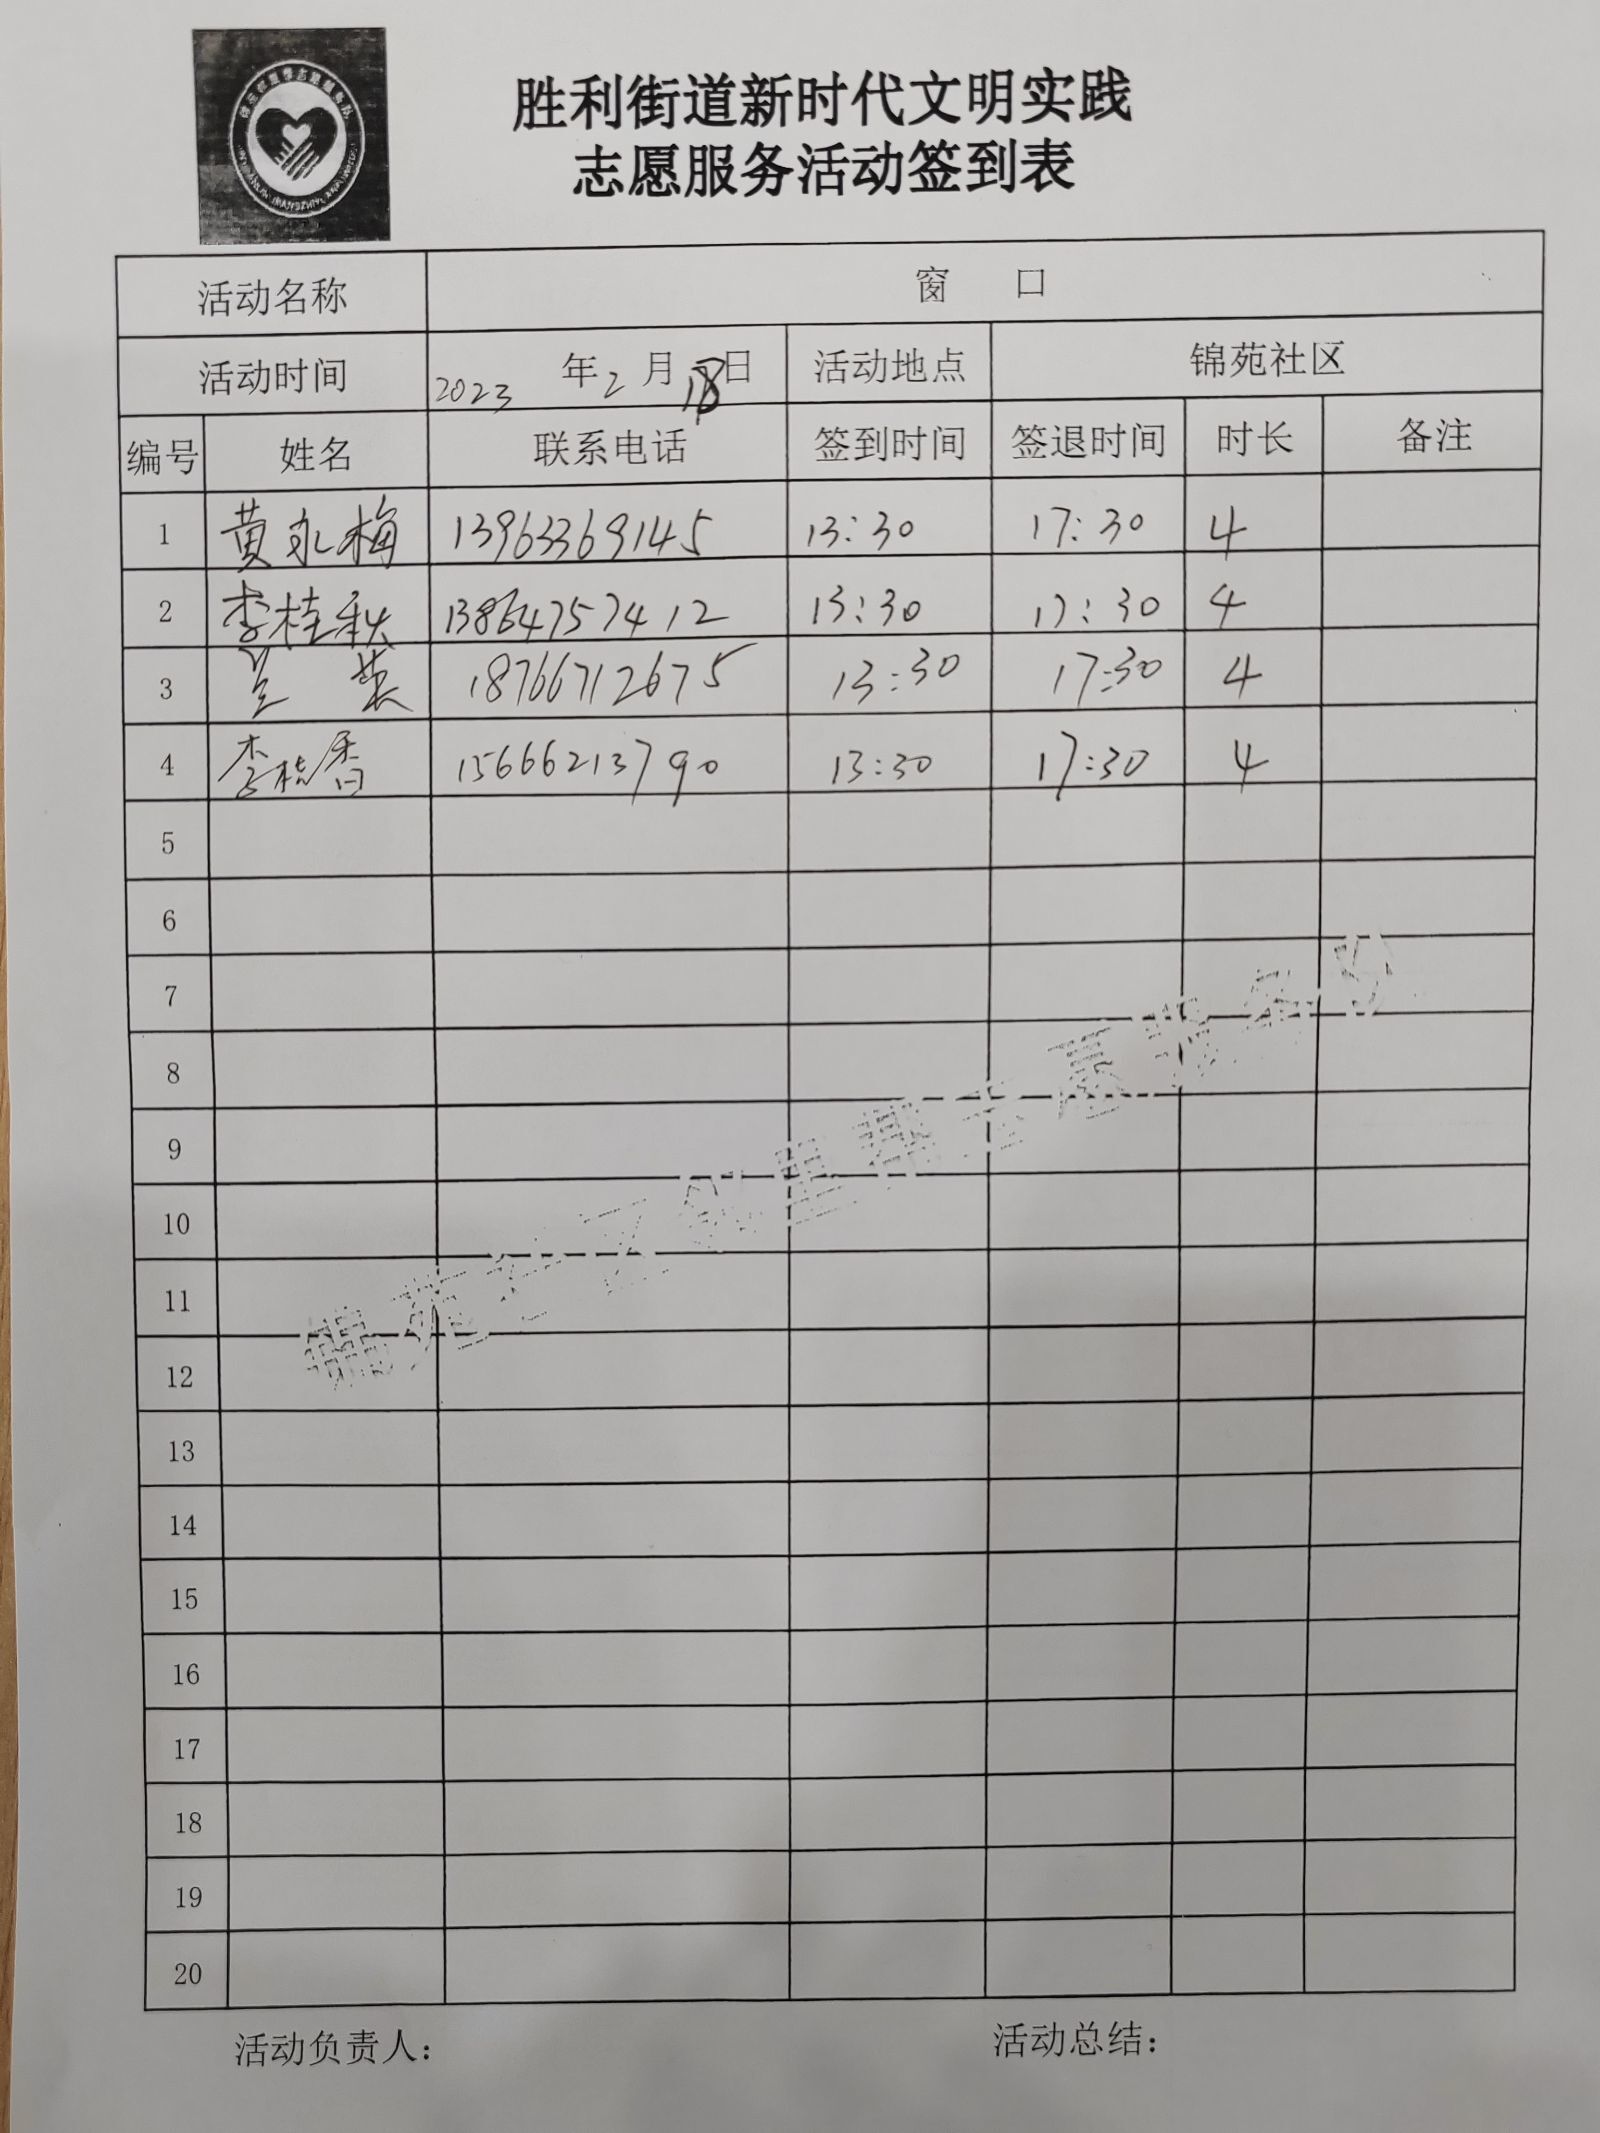 胜利街道新时代文明实践
志愿服务活动签到表
活动名称 窗 口
活动时间 2023 年 2 月 18 日 活动地点 锦苑社区
编号 姓名 联系电话 签到时间 签退时间 时长 备注
1 黄永梅 13963369145 13:30 17:30 4
2 李桂秋 13864757412 13:30 17:30 4
3 兰英 18766712675 13:30 17:30 4
4 李桂香 15666213790 13:30 17:30 4
5
6
7
8
9
10
11
12
13
14
15
16
17
18
19
20
活动负责人: 活动总结: